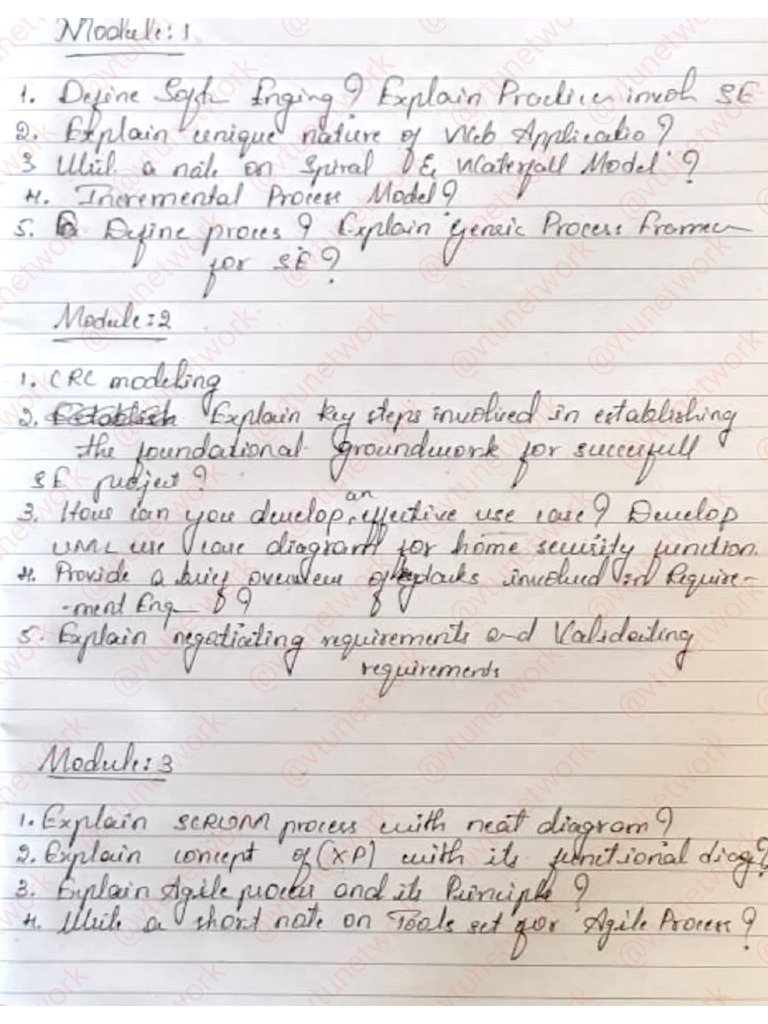 Module: 1
1. Define Soft Enging ? Explain Practices involv SE
2. Explain unique nature of Web Applicatio ?
3 Write a note on Spiral & Waterfall Model ?
4. Incremental Process Model ?
5. Define proces ? Explain Generic Process Framew
for SE ?
Module : 2
1. CRC modeling
2. Establish Explain key steps involved in establishing
the foundational groundwork for succefull
SE project ?
3. How can you develop an effective use case ? Develop
UML use case diagram for home security function.
4. Provide a brief overview of tasks involved in Require-
-ment Eng ?
5. Explain negotiating requirements and Validating
requirements
Module : 3
1. Explain SCRUM process with neat diagram ?
2. Explain concept of (XP) with its functional diag ?
3. Explain Agile process and its Principle ?
4. Write a short note on Tools set for Agile Process ?
@vtunetwork